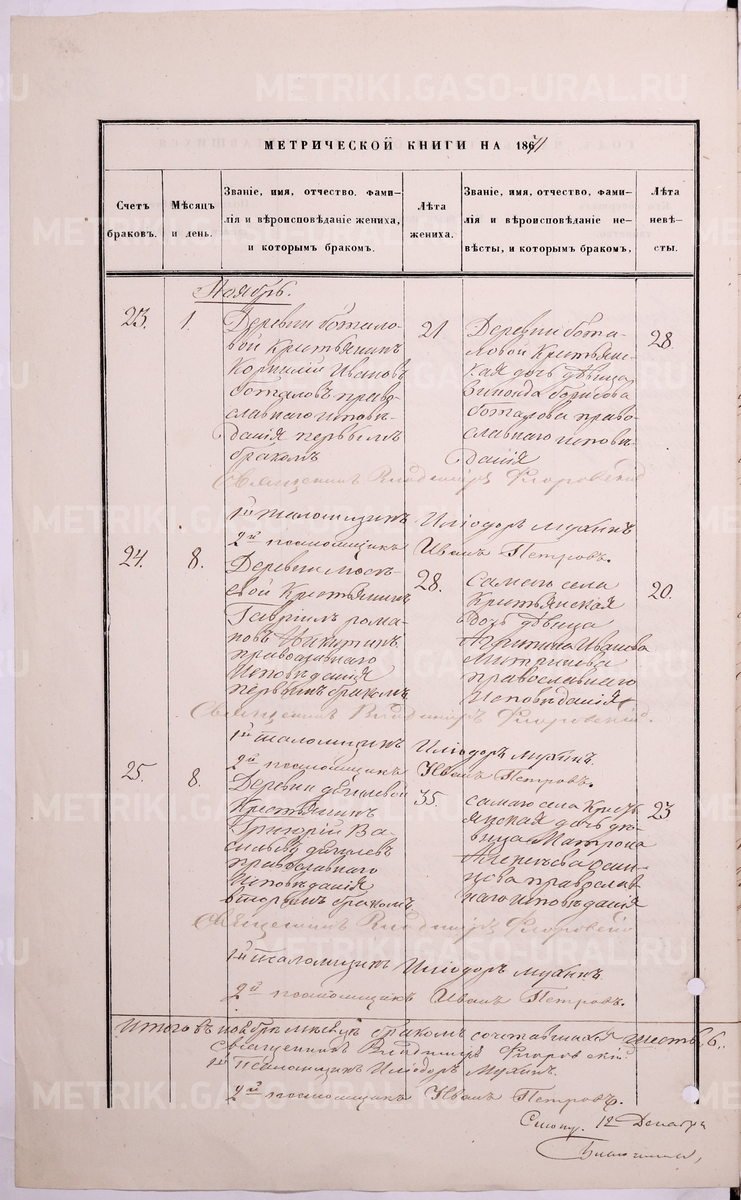 METRIKI.GASO-URAL.RU
МЕТРИЧЕСКОЙ КНИГИ НА 1871
Счетъ браковъ.
Мѣсяцъ и день.
Званіе, имя, отчество, фами-
лія и вѣроисповѣданіе жениха,
и которымъ бракомъ.
Лѣта жениха.
Званіе, имя, отчество, фами-
лія и вѣроисповѣданіе не-
вѣсты, и которымъ бракомъ.
Лѣта невѣ-
сты.
Ноябрь.
23.
1
Деревни Ботало-
вой Крестьянинъ
Корнилій Ивановъ
Боталовъ право-
славнаго исповѣ-
данія первымъ
бракомъ
21
Деревни Бота-
ловой Крестьянс-
кая дочь дѣвица
Борисова
Боталова право-
славнаго исповѣ-
данія
28.
Священникъ Владиміръ Флоровскій
1й Псаломщикъ Иліодоръ Мухинъ
2й псаломщикъ Иванъ Петровъ.
24.
8.
Деревни
Крестьянинъ
Гавріилъ Рома-
новъ Никитинъ
православнаго
исповѣданія
первымъ бракомъ
28.
Самаго села
Крестьянская
дочь дѣвица
Агрипина Иванова
православнаго
исповѣданія
20.
Священникъ Владиміръ Флоровскій.
1й Псаломщикъ Иліодоръ Мухинъ.
2й псаломщикъ Иванъ Петровъ.
25.
8.
Деревни Дягилевой
Крестьянинъ
Григорій Ва-
сильевъ Дягилевъ
православнаго
исповѣданія
вторымъ бракомъ
35.
самаго села Кресть-
янская дочь дѣ-
вица Матрона
православ-
наго исповѣданія
23
Священникъ Владиміръ Флоровскій
1й Псаломщикъ Иліодоръ Мухинъ
2й псаломщикъ Иванъ Петровъ.
Итого въ ноябрѣ мѣсяцѣ бракомъ сочетавшихся шесть, 6.
Священникъ Владиміръ Флоровскій.
1й Псаломщикъ Иліодоръ Мухинъ.
2й псаломщикъ Иванъ Петровъ.
12 Декабря